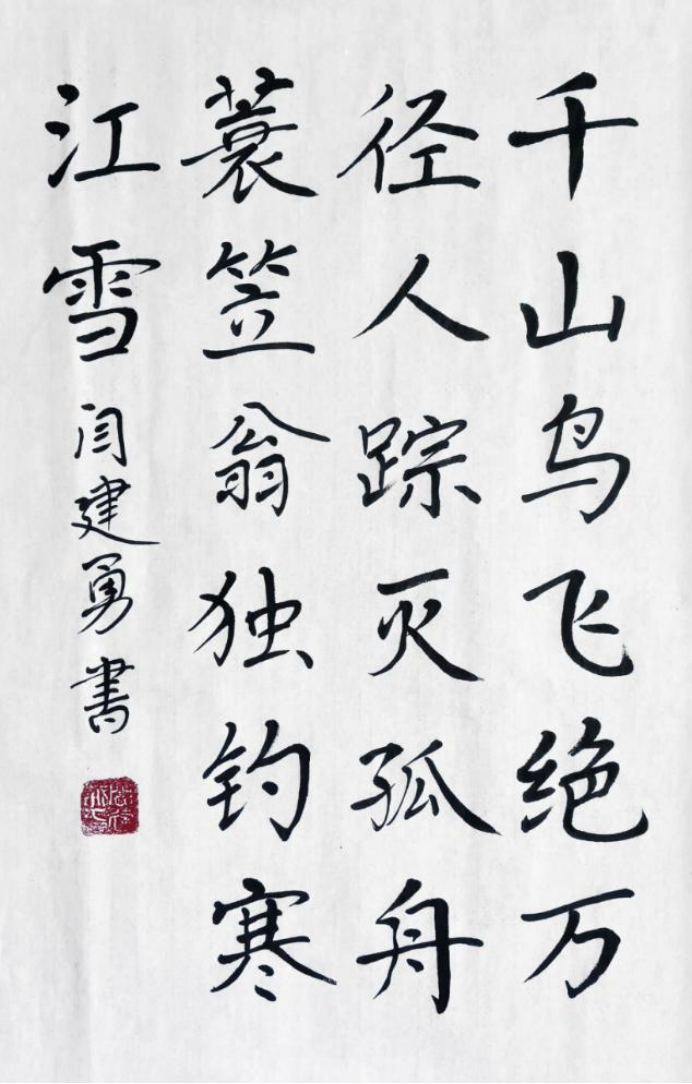 千山鸟飞绝万
径人踪灭孤舟
蓑笠翁独钓寒
江雪
闫建勇書